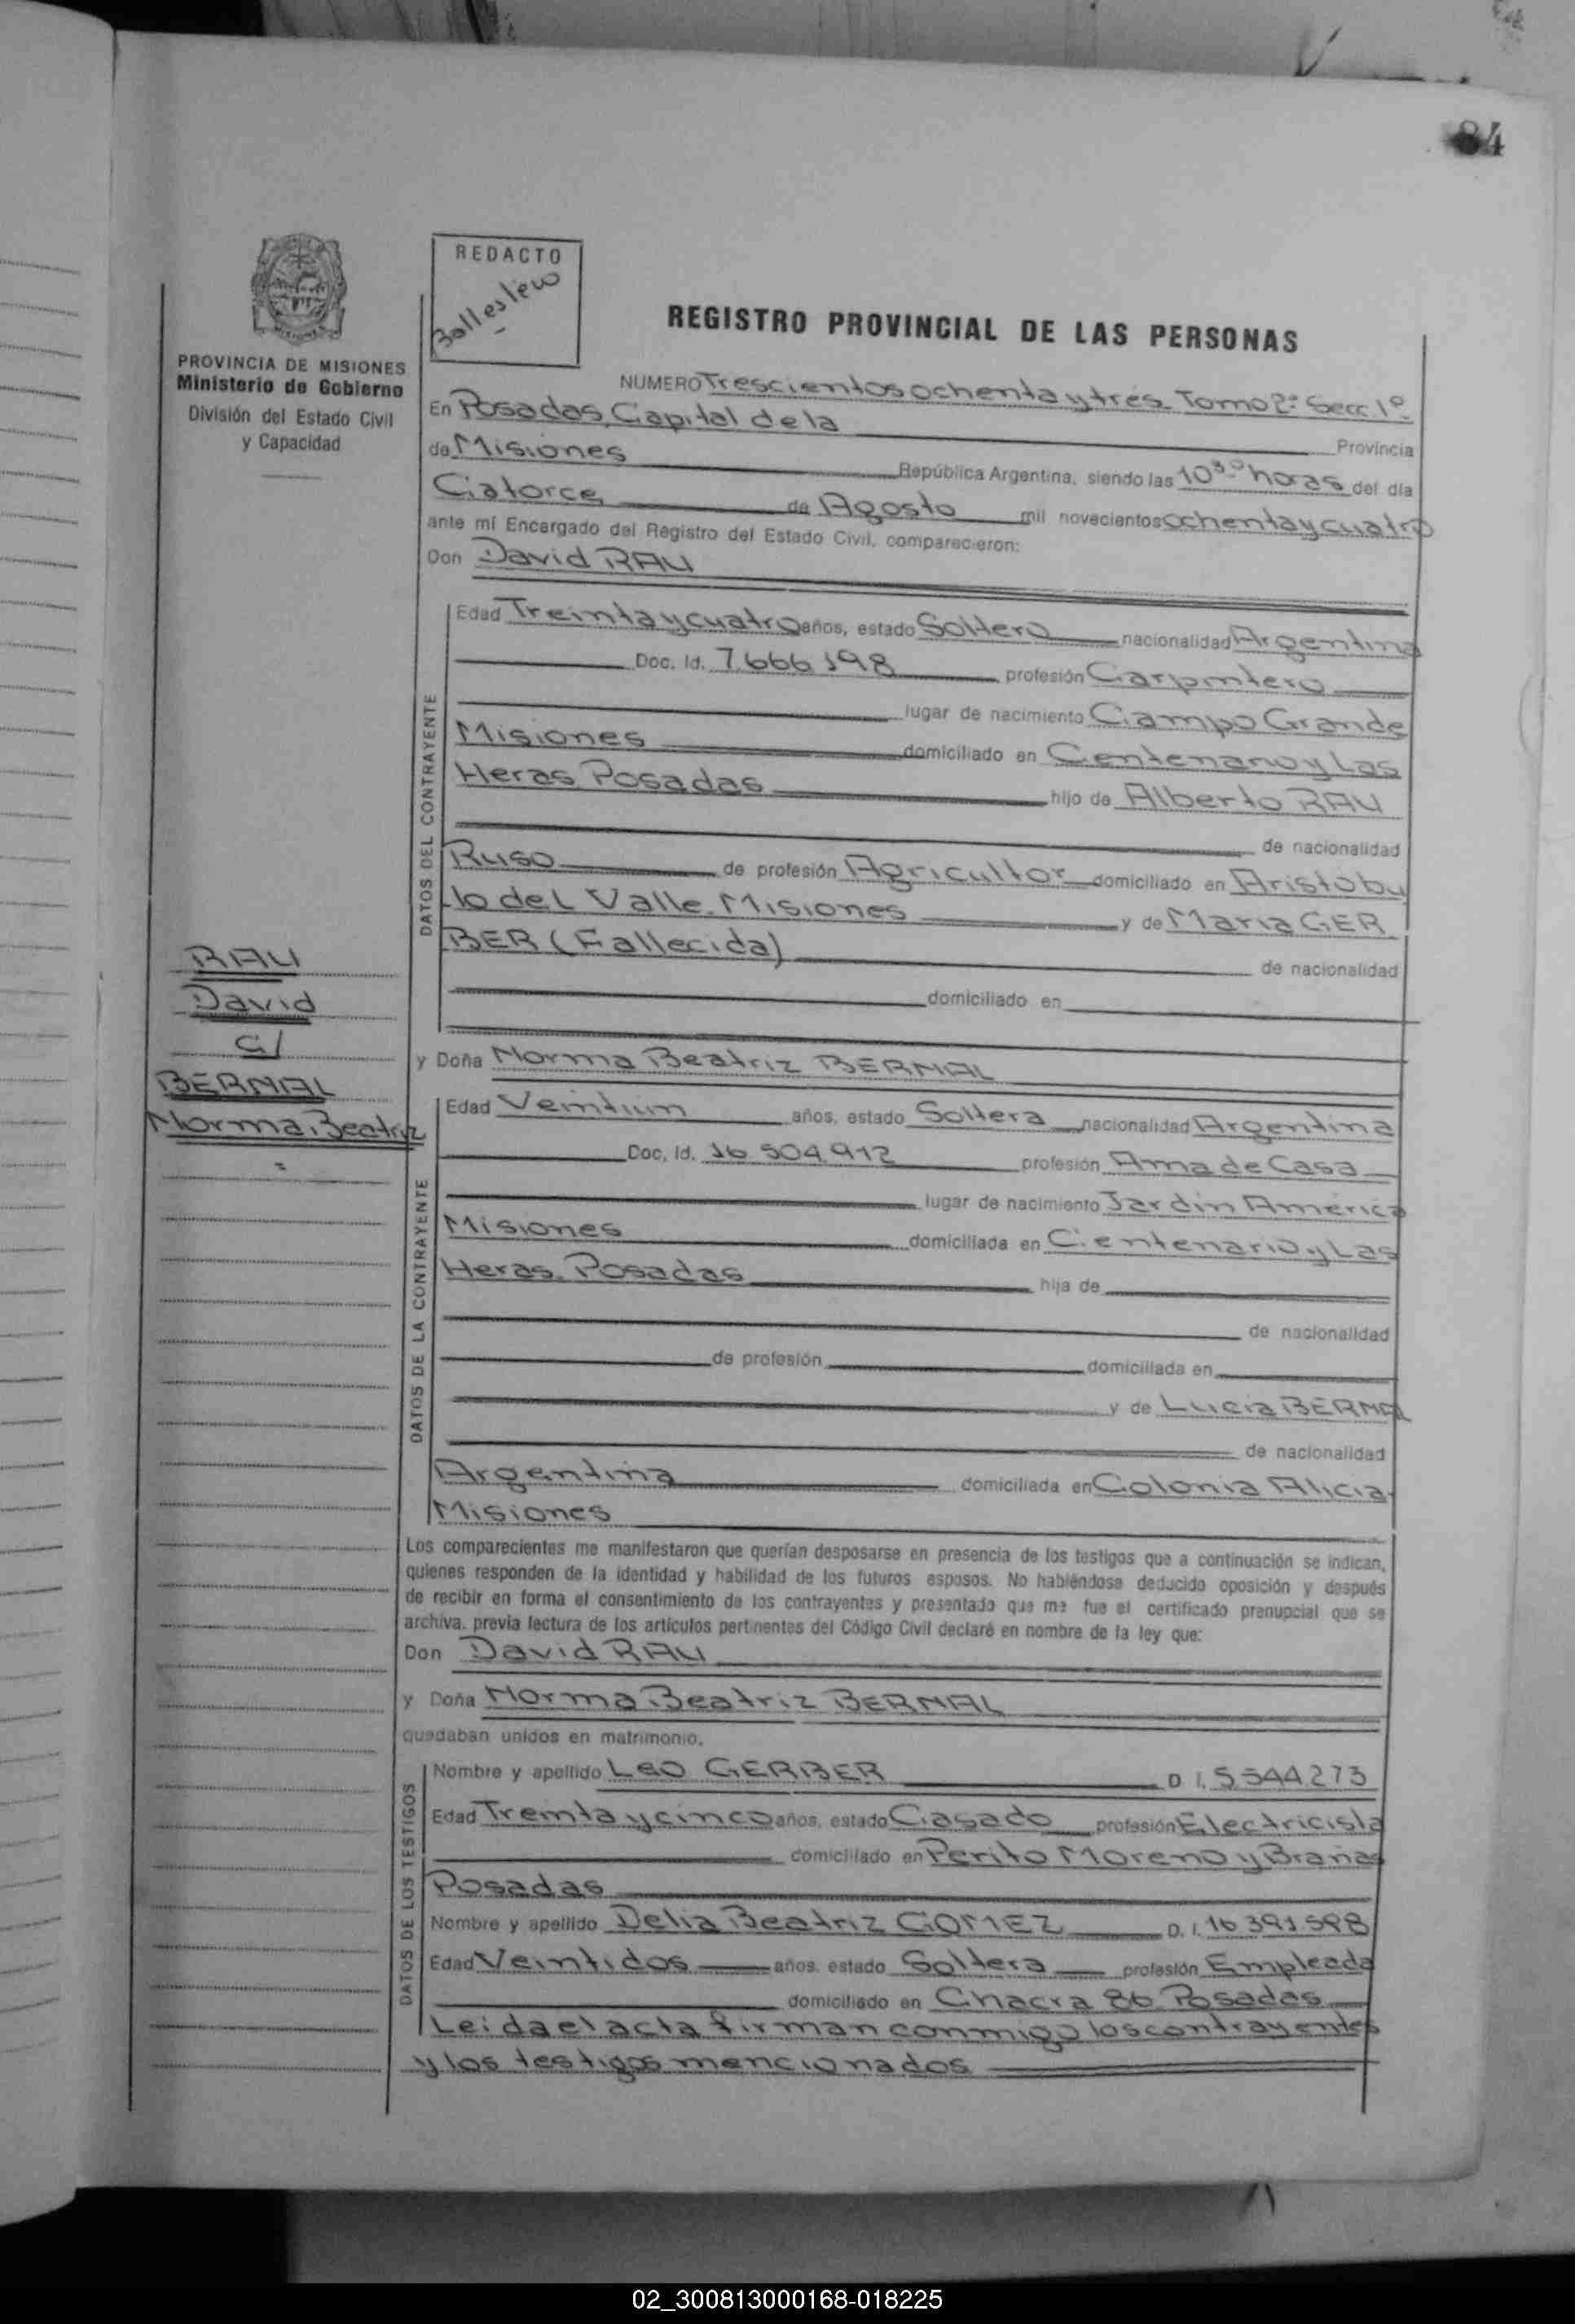 84
REDACTO
Ballestero
REGISTRO PROVINCIAL DE LAS PERSONAS
PROVINCIA DE MISIONES
Ministerio de Gobierno
División del Estado Civil
y Capacidad
NUMERO Trescientos ochenta y tres Tomo 2º Secc. 1º
En Posadas, Capital de la Provincia
de Misiones República Argentina, siendo las 10³⁰ horas del día
Catorce de Agosto mil novecientos ochenta y cuatro
ante mí Encargado del Registro del Estado Civil, comparecieron:
Don David RAU
DATOS DEL CONTRAYENTE
Edad Treinta y cuatro años, estado Soltero nacionalidad Argentina
Doc. Id. 7.666.198 profesión Carpintero
lugar de nacimiento Campo Grande
Misiones domiciliado en Centenario y Las
Heras Posadas hijo de Alberto RAU
de nacionalidad
Ruso de profesión Agricultor domiciliado en Aristóbu
lo del Valle. Misiones y de María GER
BER (Fallecida) de nacionalidad
domiciliado en
RAU
David
c/
BERNAL
Norma Beatriz
y Doña Norma Beatriz BERNAL
DATOS DE LA CONTRAYENTE
Edad Veintiun años, estado Soltera nacionalidad Argentina
Doc. Id. 16.504.912 profesión Ama de Casa
lugar de nacimiento Jardín América
Misiones domiciliada en Centenario y Las
Heras. Posadas hija de
de nacionalidad
de profesión domiciliada en
y de Lucía BERNAL
de nacionalidad
Argentina domiciliada en Colonia Alicia
Misiones
Los comparecientes me manifestaron que querían desposarse en presencia de los testigos que a continuación se indican,
quienes responden de la identidad y habilidad de los futuros esposos. No habiéndose deducido oposición y después
de recibir en forma el consentimiento de los contrayentes y presentado que me fue el certificado prenupcial que se
archiva. previa lectura de los artículos pertinentes del Código Civil declaré en nombre de la ley que:
Don David RAU
y Doña Norma Beatriz BERNAL
quedaban unidos en matrimonio.
DATOS DE LOS TESTIGOS
Nombre y apellido Leo GERBER D. I. 5.544.273
Edad Treinta y cinco años, estado Casado profesión Electricista
domiciliado en Perito Moreno y Brañas
Posadas
Nombre y apellido Delia Beatriz GOMEZ D. I. 16.391.598
Edad Veintidos años. estado Soltera profesión Empleada
domiciliado en Chacra 86 Posadas
Leida el acta firman conmigo los contrayentes
y los testigos mencionados
02_300813000168-018225